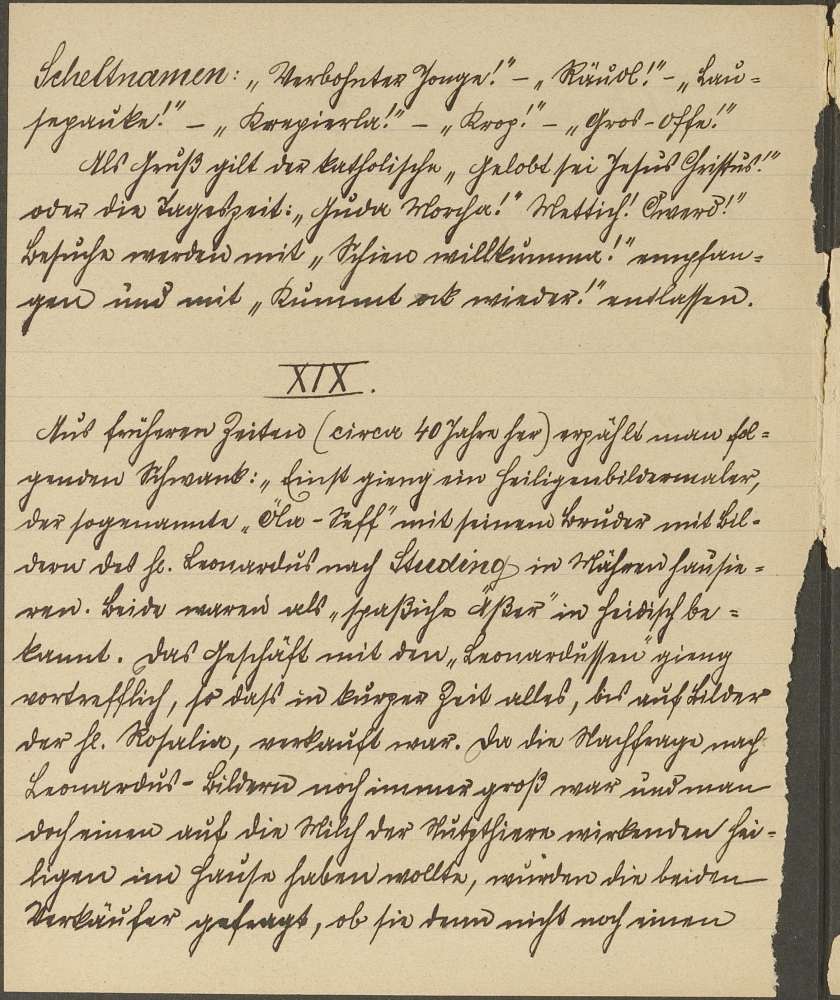 Scheltnamen: „Verbohnter Jonge!" – „Räudl!" – „Lau=
sepauke!" – „Krepierla!" – „Krop!" – „Gros-Offe!"
Als Gruß gilt der katholische „Gelobt sei Jesus Christus!"
oder die Tageszeit: „Guda Morcha! Mettich! Owerd!"
Besuche werden mit „Schien willkumma!" empfan=
gen und mit „Kummt ock wieder!" entlassen.
XIX.
Aus früheren Zeiten (circa 40 Jahre her) erzählt man fol=
genden Schwank: „Einst gieng ein Heiligenbildermaler,
der sogenannte „Öla-Seff" mit seinem Bruder mit Bil=
dern des hl. Leonardus nach Studing in Mähren hausie=
ren. Beide waren als „spaßiche Äßer" in Heidisch be=
kannt. Das Geschäft mit den „Leonardussen" gieng
vortrefflich, so dass in kurzer Zeit alles, bis auf Bilder
der hl. Rosalia, verkauft war. Da die Nachfrage nach
Leonardus-Bildern noch immer groß war und man
doch einen auf die Milch der Nutzthiere wirkenden Hei=
ligen im Hause haben wollte, wurden die beiden
Verkäufer gefragt, ob sie denn nicht noch einen